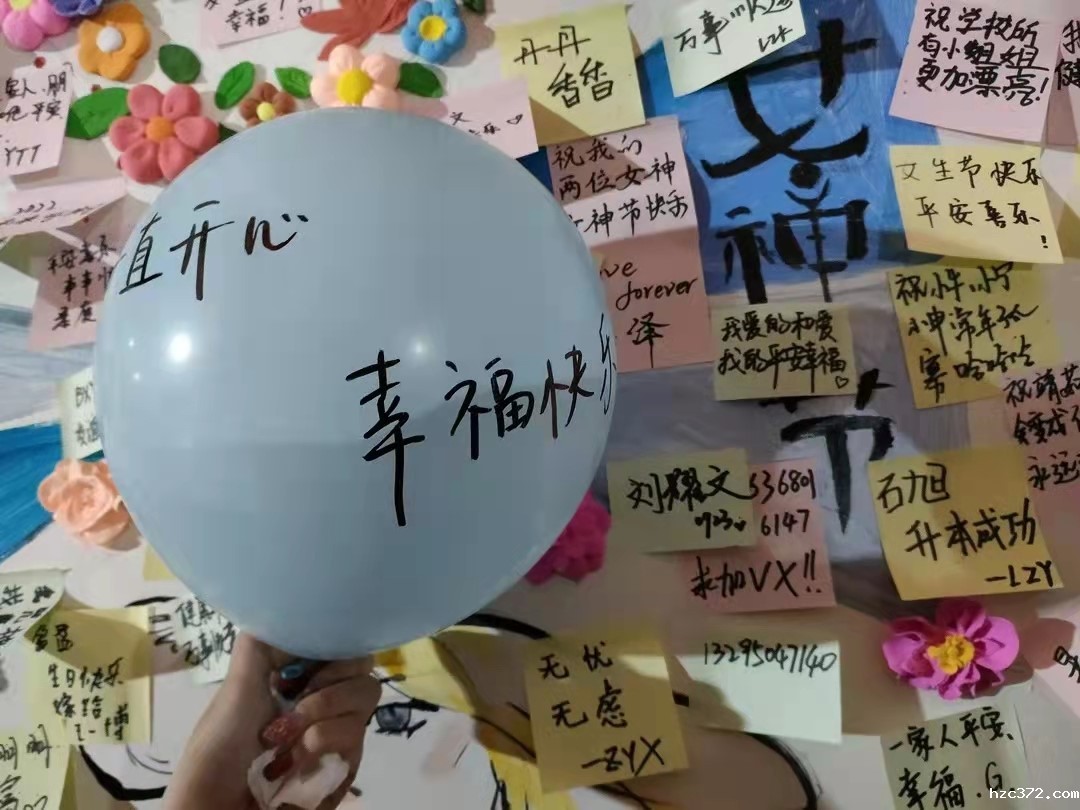 幸福!
万事
丹丹
香香
祝学校所
有小姐姐
更加票亮!
祝我们
两位女神
女神节快乐
forever
译
女神节
女生节快乐
平安喜乐
!
直开心
幸福快乐
我爱的和爱
我的平安幸福♡
祝小牛小宁
小申常年
寡哈哈哈
刘耀文
0923
536801
6147
求加VX!!
石旭
升本成功
-LZY
祝靖茹
永远
无忧
无虑
-ZYX
13295047140
生日快乐
嫁给
王一博
一家人平安
幸福.G
YTT
hzc372.com